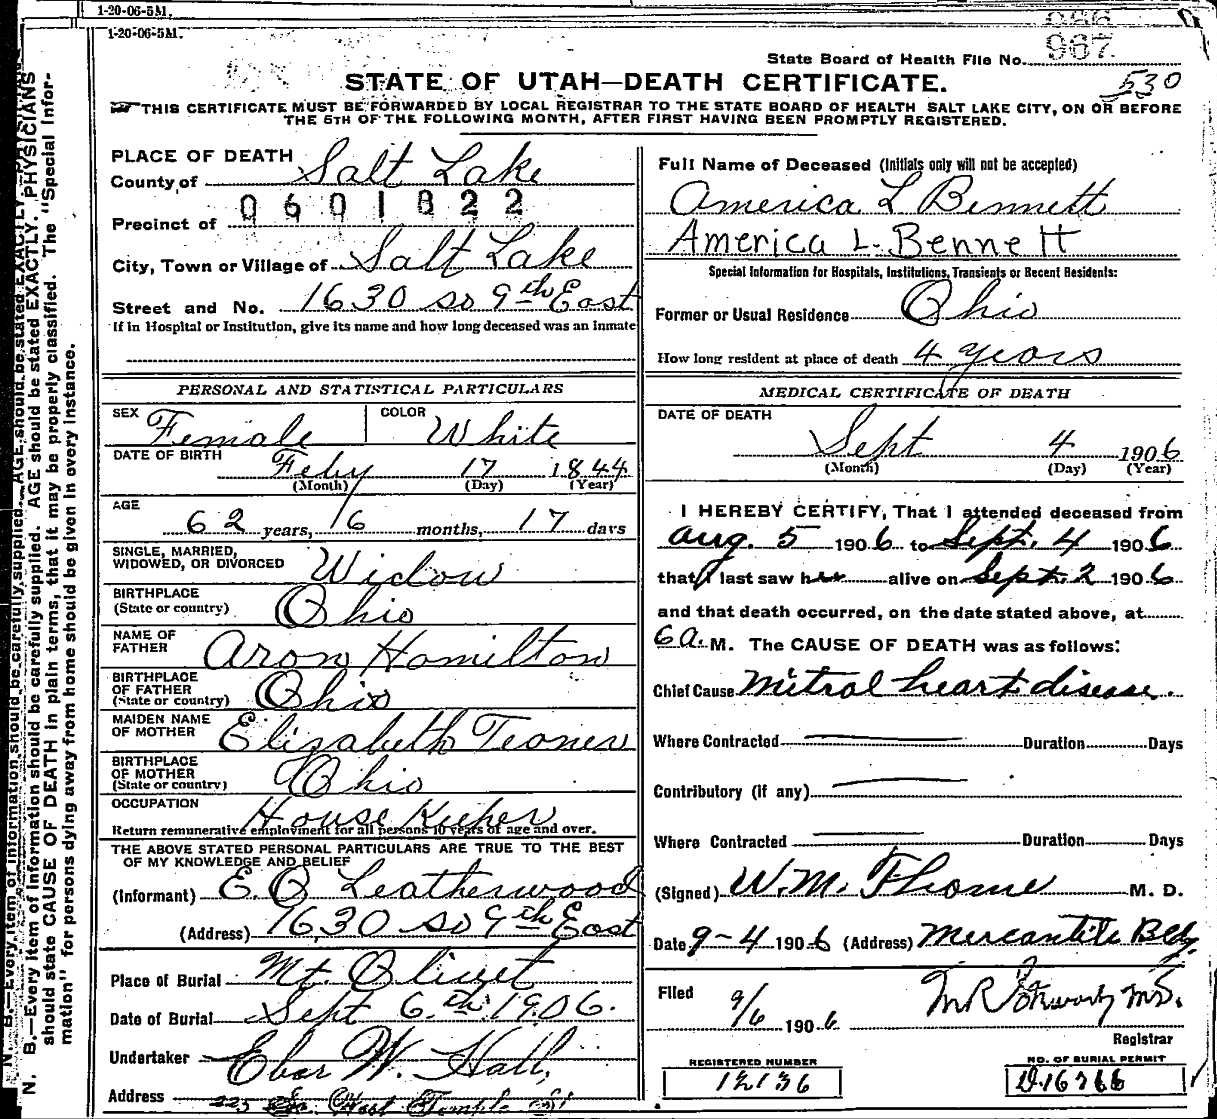 1-20-06-5M.
1-20-06-5M.
967
State Board of Health File No.
530
STATE OF UTAH—DEATH CERTIFICATE.
THIS CERTIFICATE MUST BE FORWARDED BY LOCAL REGISTRAR TO THE STATE BOARD OF HEALTH SALT LAKE CITY, ON OR BEFORE
THE 5TH OF THE FOLLOWING MONTH, AFTER FIRST HAVING BEEN PROMPTLY REGISTERED.
PLACE OF DEATH
County of Salt Lake
0601822
Precinct of
City, Town or Village of Salt Lake
Street and No. 1630 so 9th East
If in Hospital or Institution, give its name and how long deceased was an inmate
PERSONAL AND STATISTICAL PARTICULARS
SEX Female COLOR White
DATE OF BIRTH Feby 17 1844
(Month) (Day) (Year)
AGE
62 years, 6 months, 17 days
SINGLE, MARRIED,
WIDOWED, OR DIVORCED Widow
BIRTHPLACE
(State or country) Ohio
NAME OF
FATHER Aron Hamilton
BIRTHPLACE
OF FATHER
(State or country) Ohio
MAIDEN NAME
OF MOTHER Elizabeth
BIRTHPLACE
OF MOTHER
(State or country) Ohio
OCCUPATION House Keeper
Return remunerative employment for all persons 10 years of age and over.
THE ABOVE STATED PERSONAL PARTICULARS ARE TRUE TO THE BEST
OF MY KNOWLEDGE AND BELIEF
(Informant) E. O. Leatherwood
(Address) 1630 so 9th East
Place of Burial Mt. Olivet
Date of Burial Sept 6th 1906.
Undertaker Eber W. Hall,
Address 225 So. West Temple St
Full Name of Deceased (Initials only will not be accepted)
America L Bennett
America L. Bennett
Special Information for Hospitals, Institutions, Transients or Recent Residents:
Former or Usual Residence Ohio
How long resident at place of death 4 years
MEDICAL CERTIFICATE OF DEATH
DATE OF DEATH
Sept 4 1906
(Month) (Day) (Year)
I HEREBY CERTIFY, That I attended deceased from
Aug. 5 1906 to Sept. 4 1906
that I last saw her alive on Sept. 2 1906
and that death occurred, on the date stated above, at
6 a. M. The CAUSE OF DEATH was as follows:
Chief Cause Mitral heart disease.
Where Contracted Duration Days
Contributory (if any)
Where Contracted Duration Days
(Signed) W. M. Thome M. D.
Date 9-4 1906 (Address) Mercantile Bldg
Filed 9/6 1906
Registrar
REGISTERED NUMBER
12136
NO. OF BURIAL PERMIT
N. B.—Every item of information should be carefully supplied. AGE should be stated EXACTLY. PHYSICIANS
should state CAUSE OF DEATH in plain terms, that it may be properly classified. The "Special Infor-
mation" for persons dying away from home should be given in every instance.